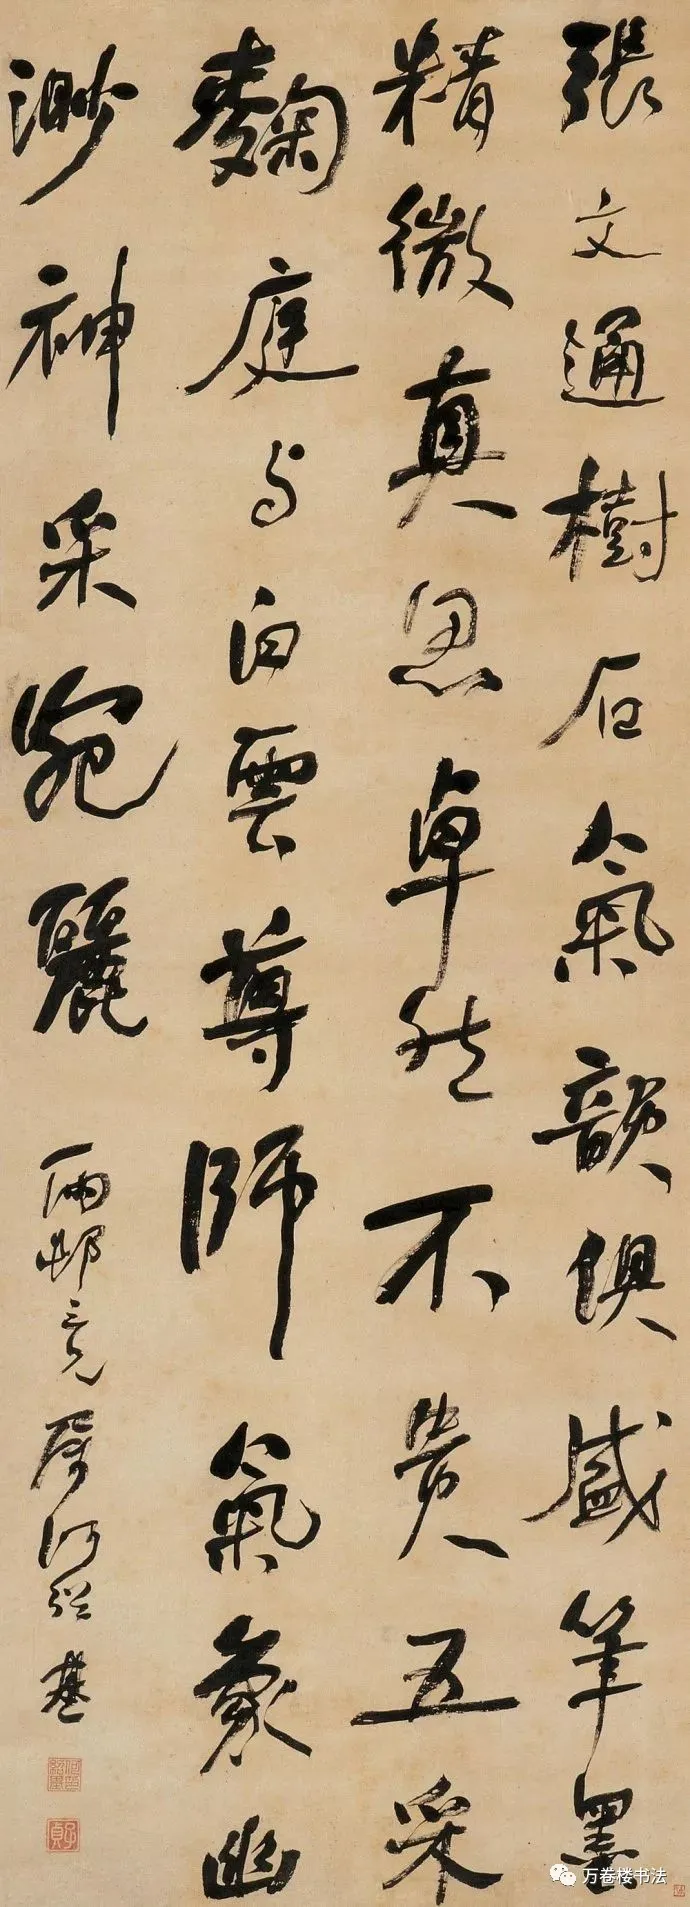 張文通樹石氣韻俱盛筆墨
精微真思卓然不貴五采
麴庭与白雲尊師氣象幽
渺神采宛麗
雨邨三兄属何紹基
子貞
万卷楼书法